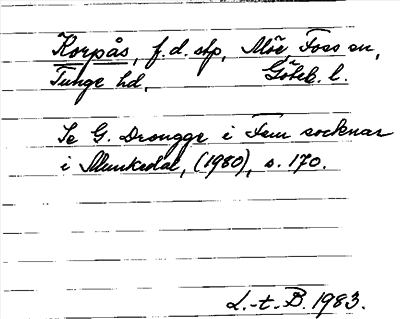 Korpås, f.d. stp, Möe Foss sn,
Tunge hd. Göteb. l.
Se G. Drougge i Fem socknar
i Munkedal, (1980), s. 170.
L.-t. B. 1983.